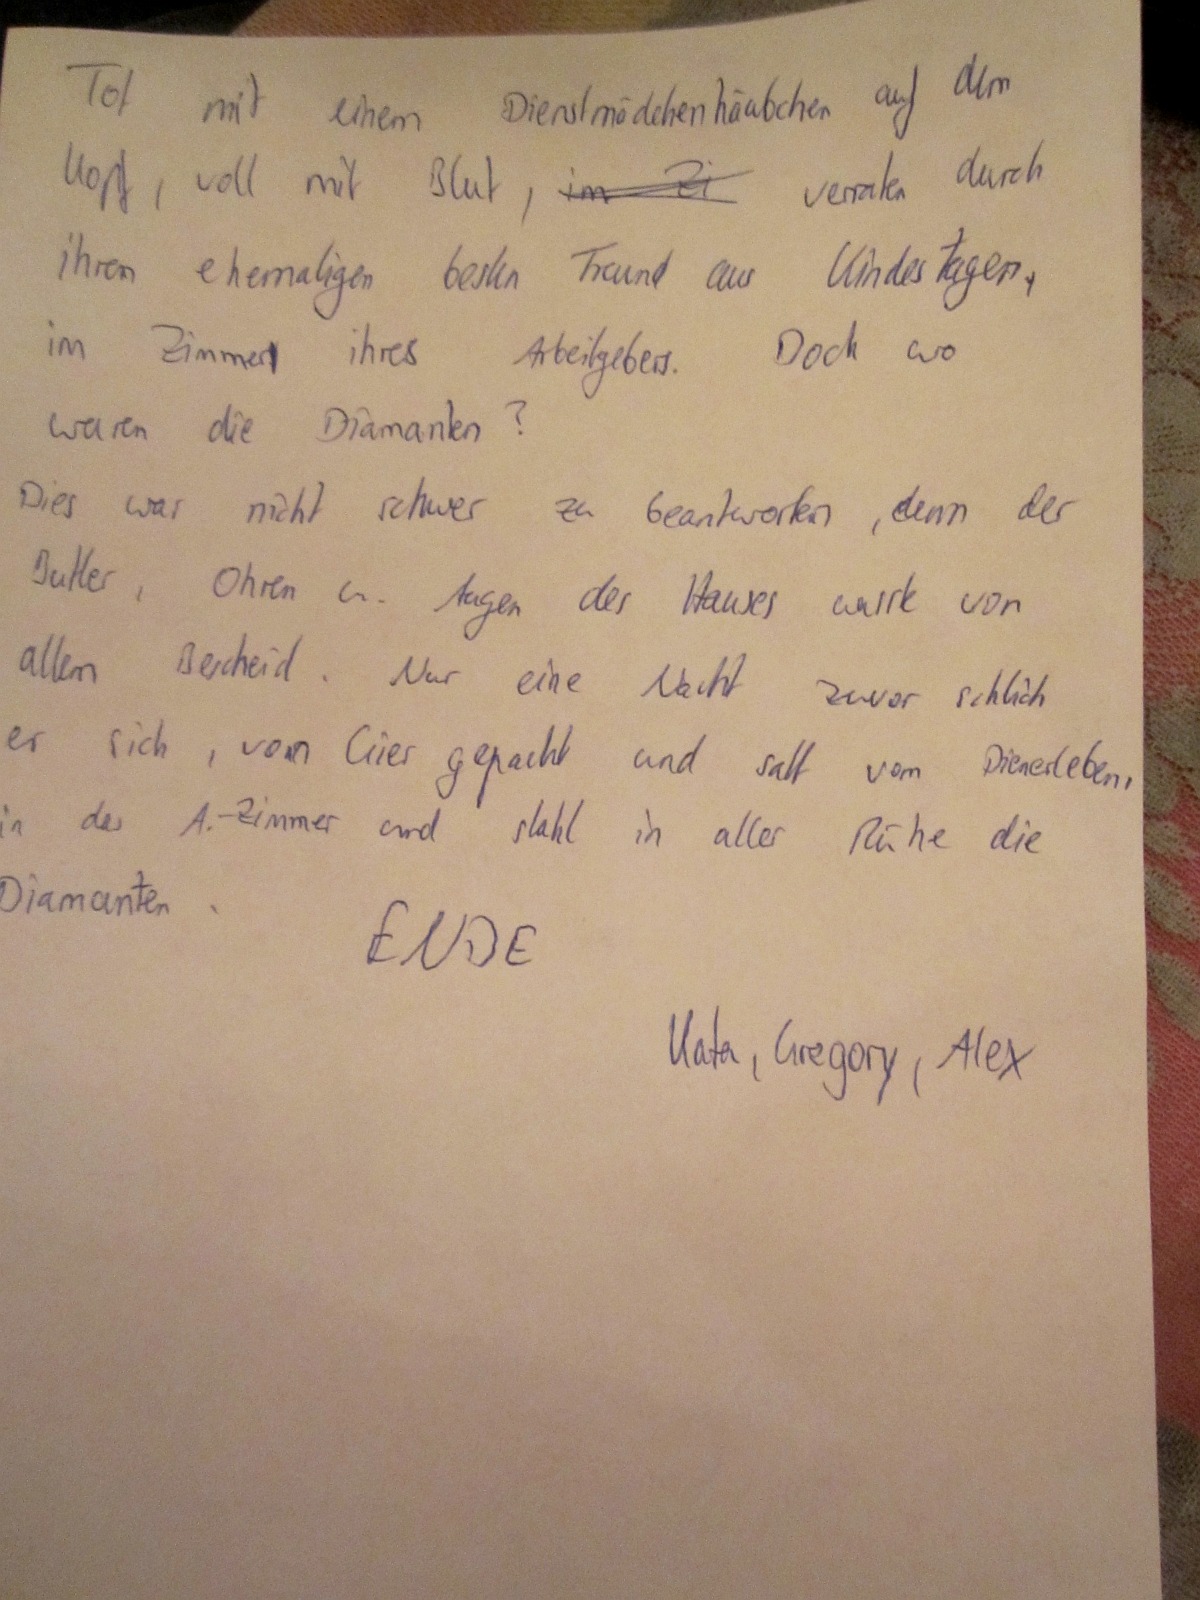 Tot mit einem Dienstmädchenhäubchen auf dem
Kopf, voll mit Blut, im Zi verraten durch
ihren ehemaligen besten Freund aus Kindestagen,
im Zimmer ihres Arbeitgebers. Doch wo
waren die Diamanten?
Dies war nicht schwer zu beantworten, denn der
Butler, Ohren u. Augen des Hauses wusste von
allem Bescheid. Nur eine Nacht zuvor schlich
er sich, vom Gier gepackt und satt vom Dienerleben,
in das A.-Zimmer und stahl in aller Ruhe die
Diamanten.
ENDE
Kata, Gregory, Alex